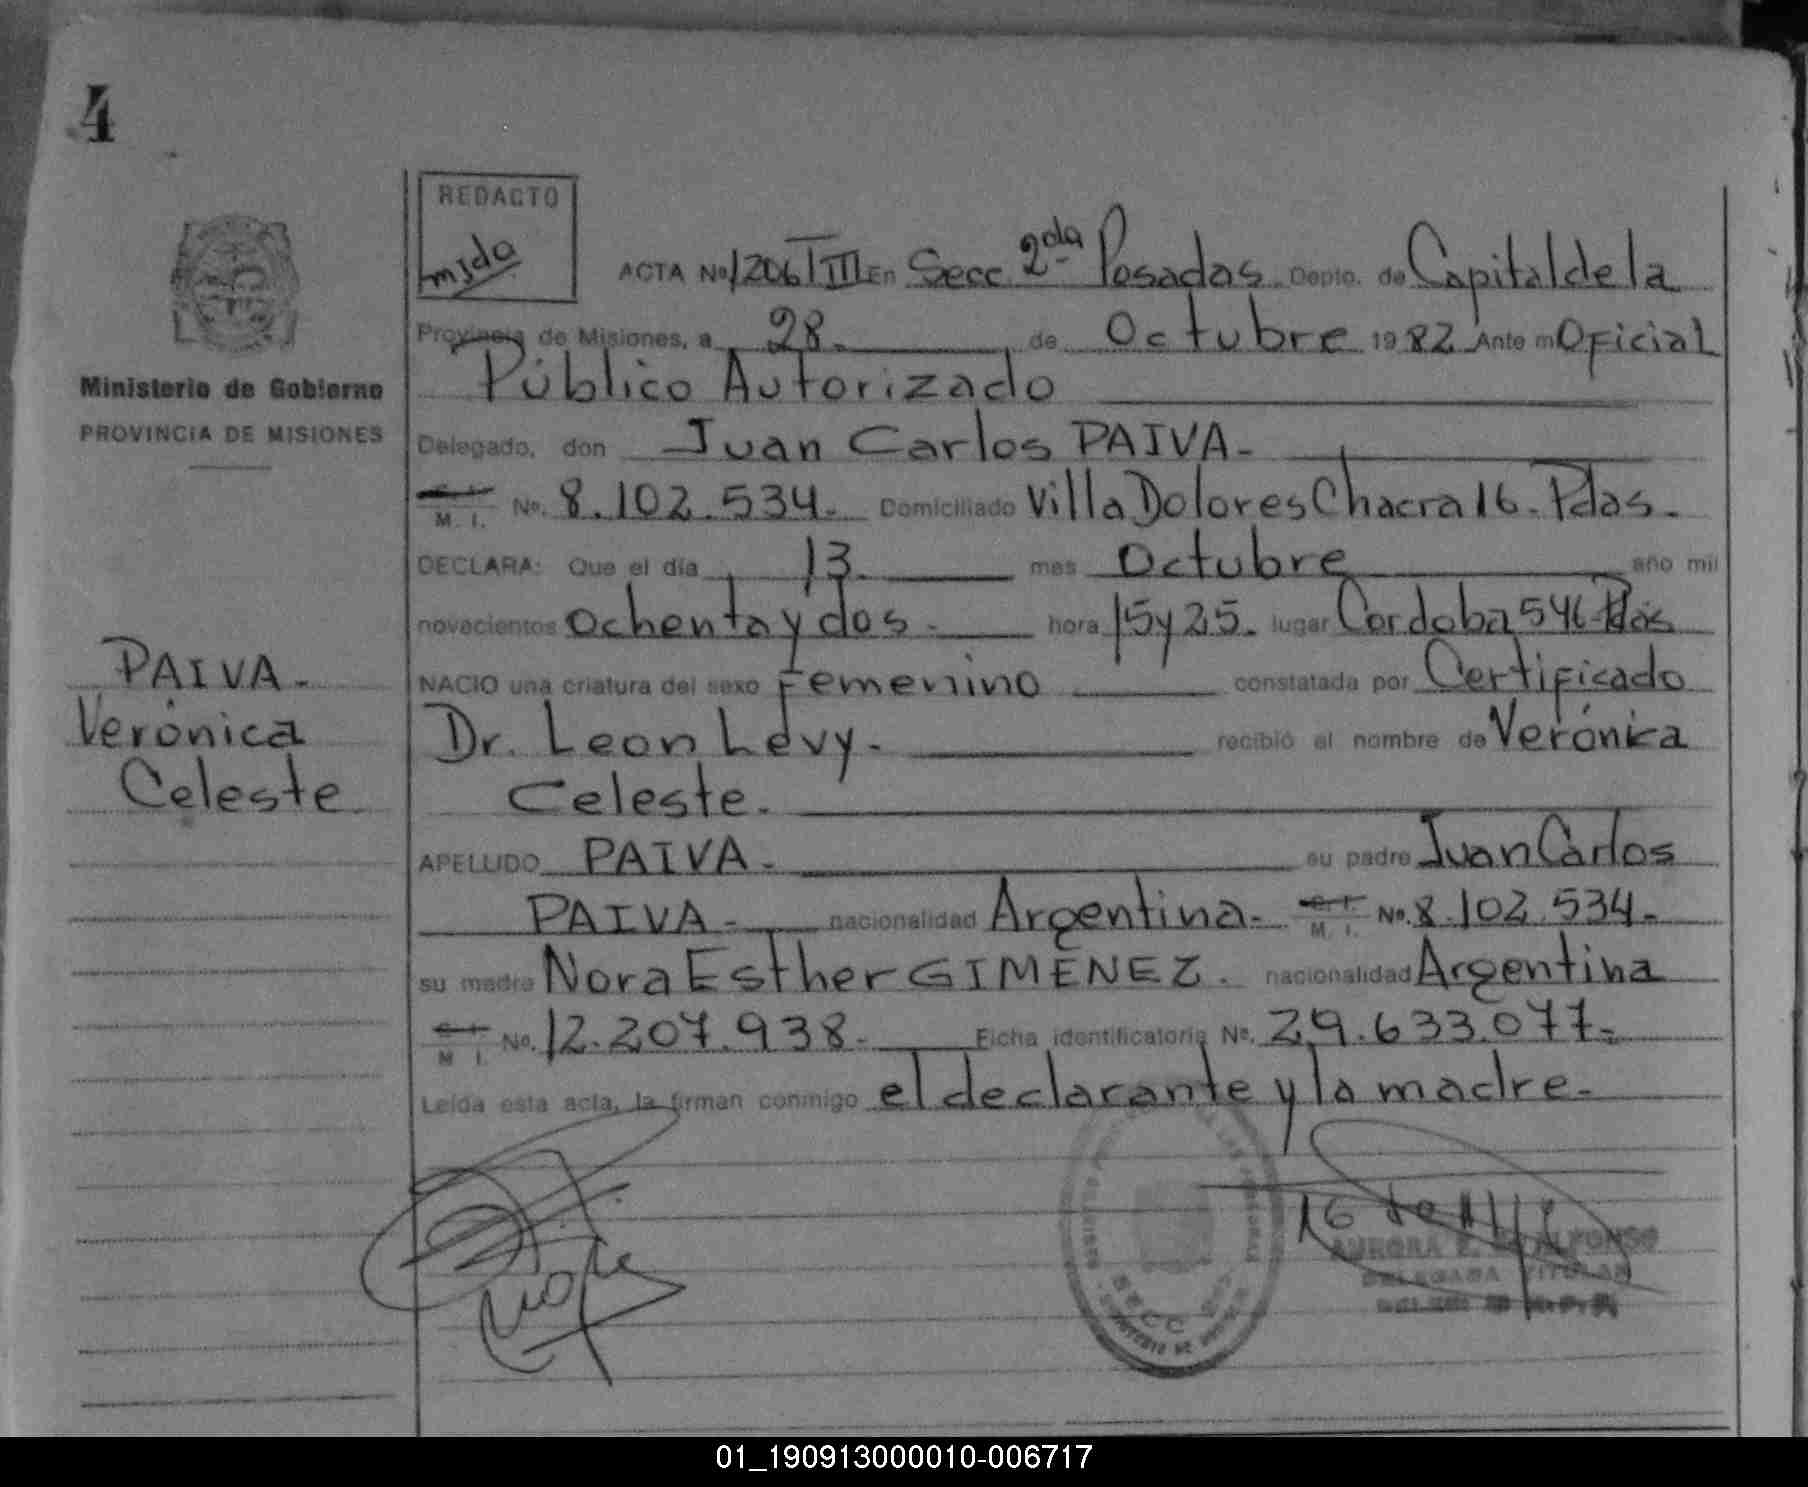 4
REDACTO
mjda
ACTA No 1206 T III En Secc. 2da Posadas. Depto. de Capital de la
Provincia de Misiones, a 28. de Octubre 1982 Ante mi Oficial
Público Autorizado
Ministerio de Gobierno
PROVINCIA DE MISIONES
Delegado, don Juan Carlos PAIVA.
M. I. No. 8.102.534. Domiciliado Villa Dolores Chacra 16. Pdas.
DECLARA: Que el día 13. mes Octubre año mil
novecientos ochenta y dos. hora 15 y 25. lugar Cordoba 546 Pdas
PAIVA.
Verónica
Celeste
NACIO una criatura del sexo Femenino constatada por Certificado
Dr. Leon Lévy. recibió el nombre de Verónica
Celeste.
APELLIDO PAIVA. su padre Juan Carlos
PAIVA. nacionalidad Argentina. C. I. M. I. No. 8.102.534.
su madre Nora Esther GIMENEZ. nacionalidad Argentina
C. I. M I. No. 12.207.938. Ficha identificatoria No. 29.633.077.
Leída esta acta, la firman conmigo el declarante y la madre.
SECC
DELEGADA TITULAR
01_190913000010-006717